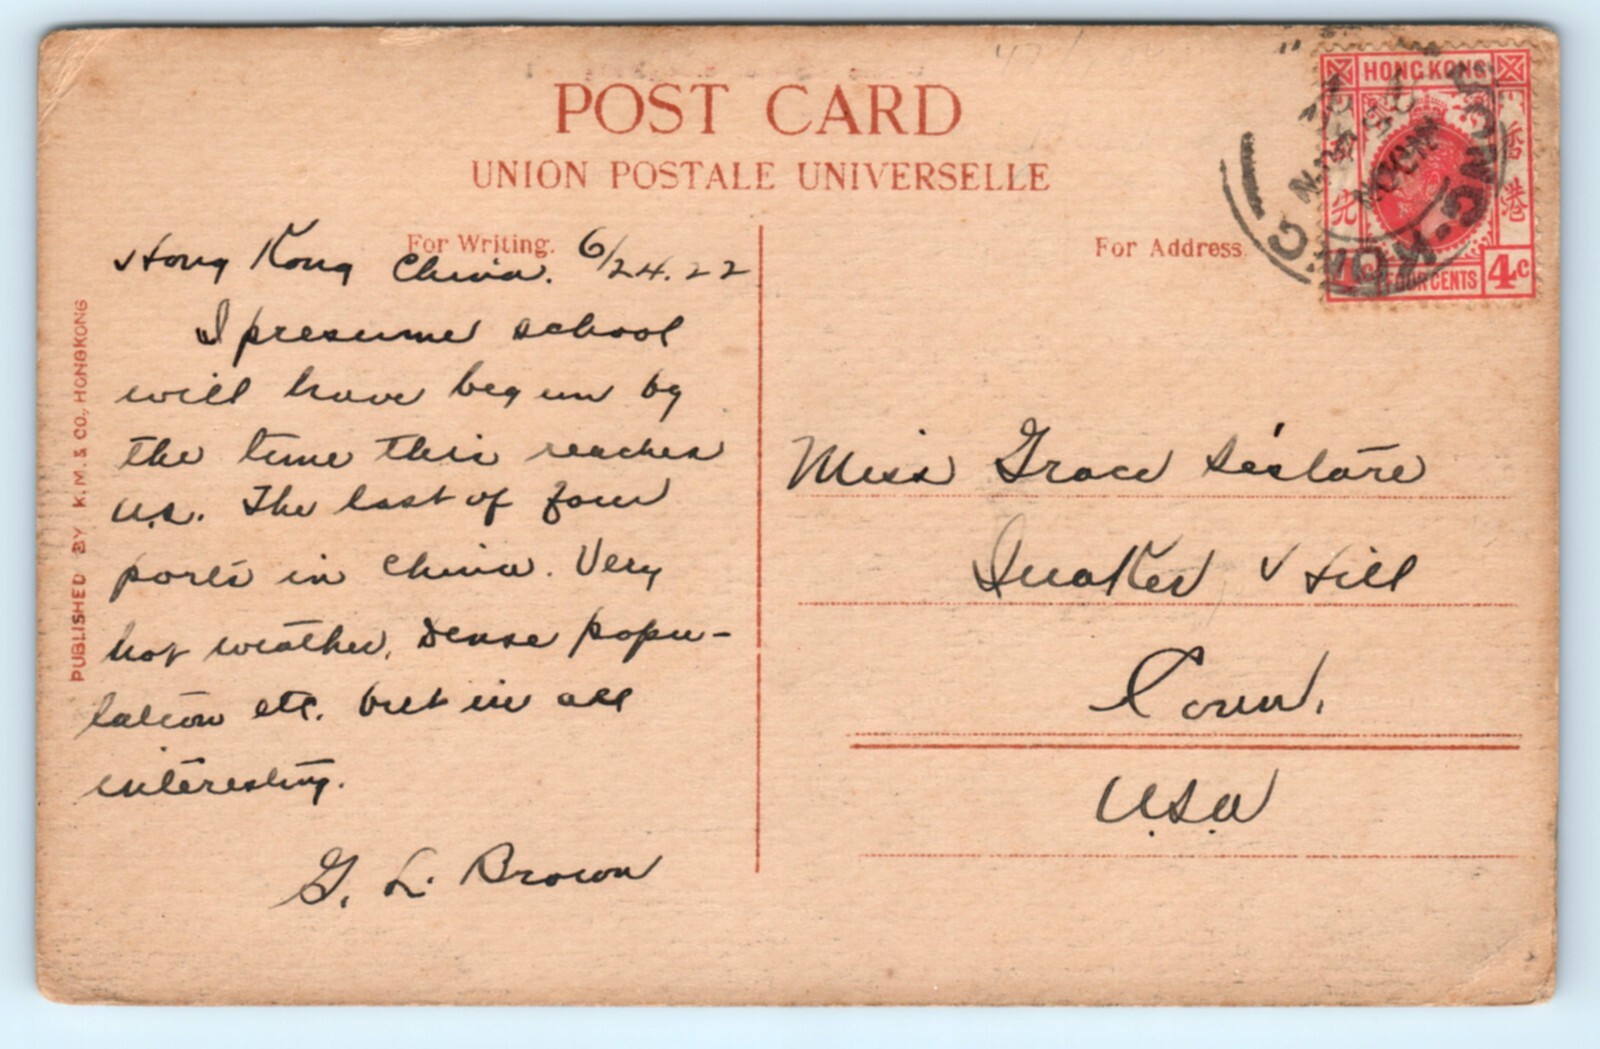 POST CARD
UNION POSTALE UNIVERSELLE
For Writing.
For Address
Hong Kong China. 6/24.22
I presume school
will have begun by
the time this reaches
U.S. The last of four
ports in China. Very
hot weather, Dense popu-
lation etc. but in all
interesting.
G. L. Brown
PUBLISHED BY K. M. & CO., HONGKONG
HONG KONG
香港
FOUR CENTS
4c
HONG KONG
NOON
Miss Grace Sistare
Quaker Hill
Conn.
U.S.A